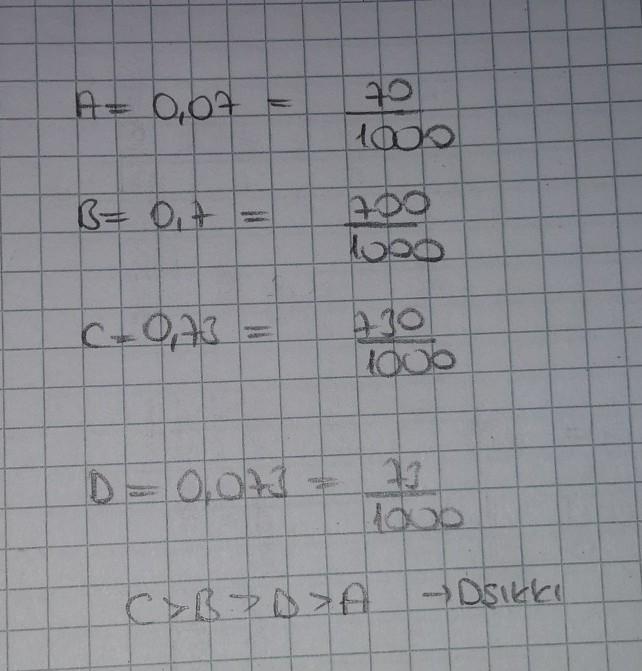 A = 0,07 = 70/1000
B = 0,7 = 700/1000
C = 0,73 = 730/1000
D = 0,073 = 73/1000
C > B > D > A → D şıkkı